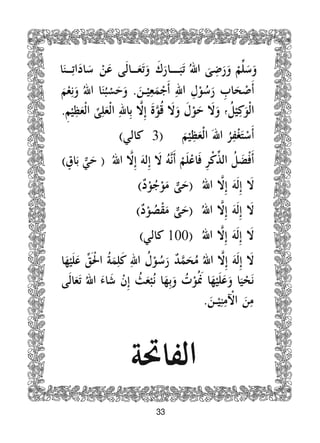 وَسَلِّمْ وَرَضِيَ اللهُ تَبَــارَكَ وَتَعَــالَى عَنْ سَادَاتِــنَا
أَصْحَابِ رَسُوْلِ اللهِ أَجْمَعِيْــنَ. وَحَسْبُنَا اللهُ وَنِعْمَ
الْوَكِيْلُ؛ وَلَا حَوْلَ وَلَا قُوَّةَ إِلَّا بِاللهِ الْعَلِيِّ الْعَظِيْمِ.
أَسْتَغْفِرُ اللهَ الْعَظِيْمَ (3 كالي)
أَفْضَلُ الذِّكْرِ فَاعْلَمْ أَنَّهُ لَا إِلَهَ إِلَّا اللهُ ( حَيٌّ بَاقٍ)
لَا إِلَهَ إِلَّا اللهُ (حَيٌّ مَوْجُوْدٌ)
لَا إِلَهَ إِلَّا اللهُ (حَيٌّ مَقْصُوْدٌ)
لَا إِلَهَ إِلَّا اللهُ (100 كالي)
لَا إِلَهَ إِلَّا اللهُ مُحَمَّدٌ رَسُوْلُ اللهِ كَلِمَةُ الْحَقِّ عَلَيْهَا
نَحْيَا وَعَلَيْهَا نَمُوْتُ وَبِهَا نُبْعَثُ إِنْ شَاءَ اللهُ تَعَالَى
مِنَ الْآمِنِيْــنَ.
الفاتحة
33